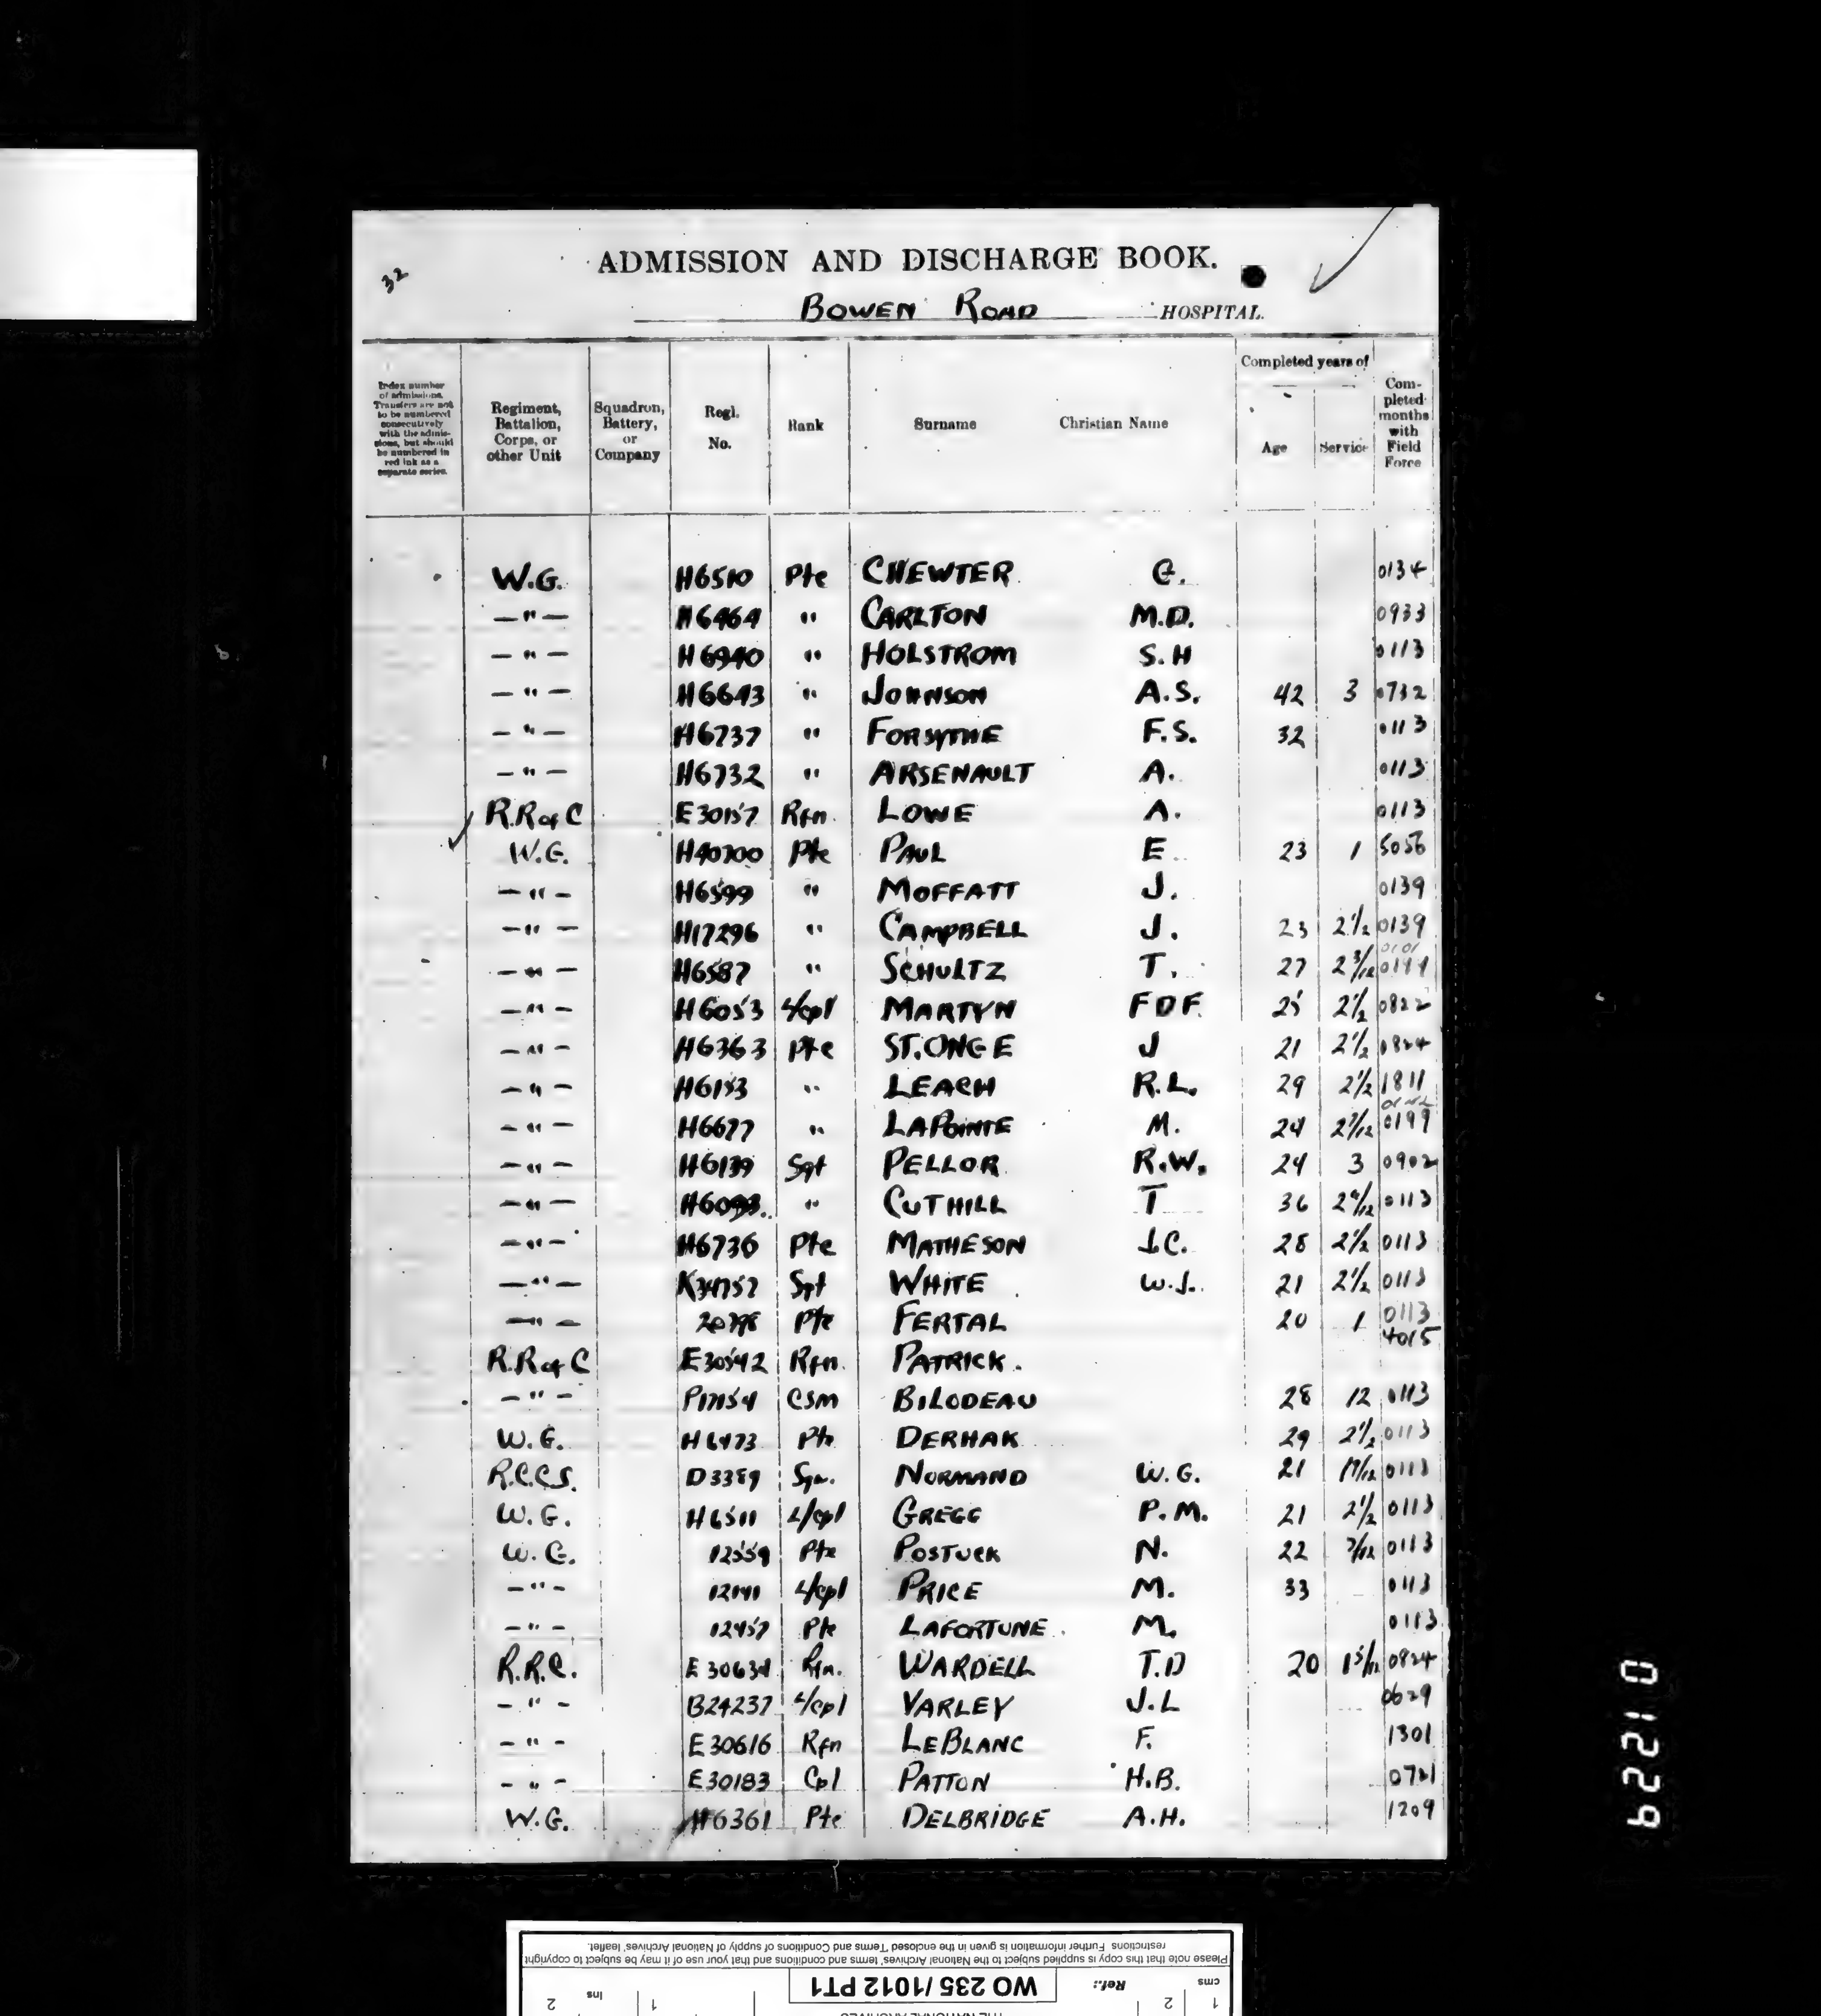 32
ADMISSION AND DISCHARGE BOOK.
BOWEN ROAD HOSPITAL.
Index number of admissions. Transfers are not to be numbered consecutively with the admissions, but should be numbered in red ink as a separate series.
Regiment, Battalion, Corps, or other Unit
Squadron, Battery, or Company
Regl. No.
Rank
Surname
Christian Name
Completed years of
Age
Service
Completed months with Field Force
W.G. H6510 Pte CHEWTER G. 0134
—"— H6464 " CARLTON M.D. 0933
—"— H6940 " HOLSTROM S.H 0113
—"— H6643 " JOHNSON A.S. 42 3 0732
—"— H6737 " FORSYTHE F.S. 32 0113
—"— H6732 " ARSENAULT A. 0113
R.R of C E30157 Rfn. LOWE A. 0113
W.G. H40700 Pte PAUL E. 23 1 5056
—"— H6599 " MOFFATT J. 0139
—"— H17296 " CAMPBELL J. 23 2 1/2 0139
—"— H6587 " SCHULTZ T. 27 2 3/12
—"— H6053 L/cpl MARTYN FDF. 25 2 1/2 0822
—"— H6363 Pte ST. ONGE J 21 2 1/2 0824
—"— H6153 " LEACH R.L. 29 2 1/2 1811
—"— H6677 " LAPOINTE M. 24 2 7/12
—"— H6139 Sgt PELLOR R.W. 24 3 0902
—"— " CUTHILL T 36 0113
—"— H6736 Pte MATHESON J.C. 28 2 1/2 0113
—"— K34757 Sgt WHITE W.J. 21 2 1/2 0113
—"— Pte FERTAL 20 1 0113
4015
R.R of C E30542 Rfn. PATRICK.
—"— P17154 CSM BILODEAU 28 12 0113
W.G. H6473 Pte DERHAK 29 2 1/2 0113
R.C.C.S. D3389 NORMAND W.G. 21 0113
W.G. H6511 L/cpl GREGG P.M. 21 2 1/2 0113
W.G. 12559 Pte POSTUCK N. 22 7/12 0113
—"— 12141 L/cpl PRICE M. 33 0113
—"— 12457 Pte LAFORTUNE. M. 0113
R.R.C. E30634 Rfn. WARDELL T.D 20 1 5/12 0824
—"— B24237 L/cpl VARLEY J.L 0629
—"— E30616 Rfn LEBLANC F. 1301
—"— E30183 Cpl PATTON H.B. 0721
W.G. H6361 Pte DELBRIDGE A.H. 1209
01229
Please note that this copy is supplied subject to the National Archives' terms and conditions and that your use of it may be subject to copyright
restrictions. Further information is given in the enclosed 'Terms and Conditions of supply of National Archives' leaflet.
Ref.: WO 235/1012 PT1
cms 1 2
ins 1 2